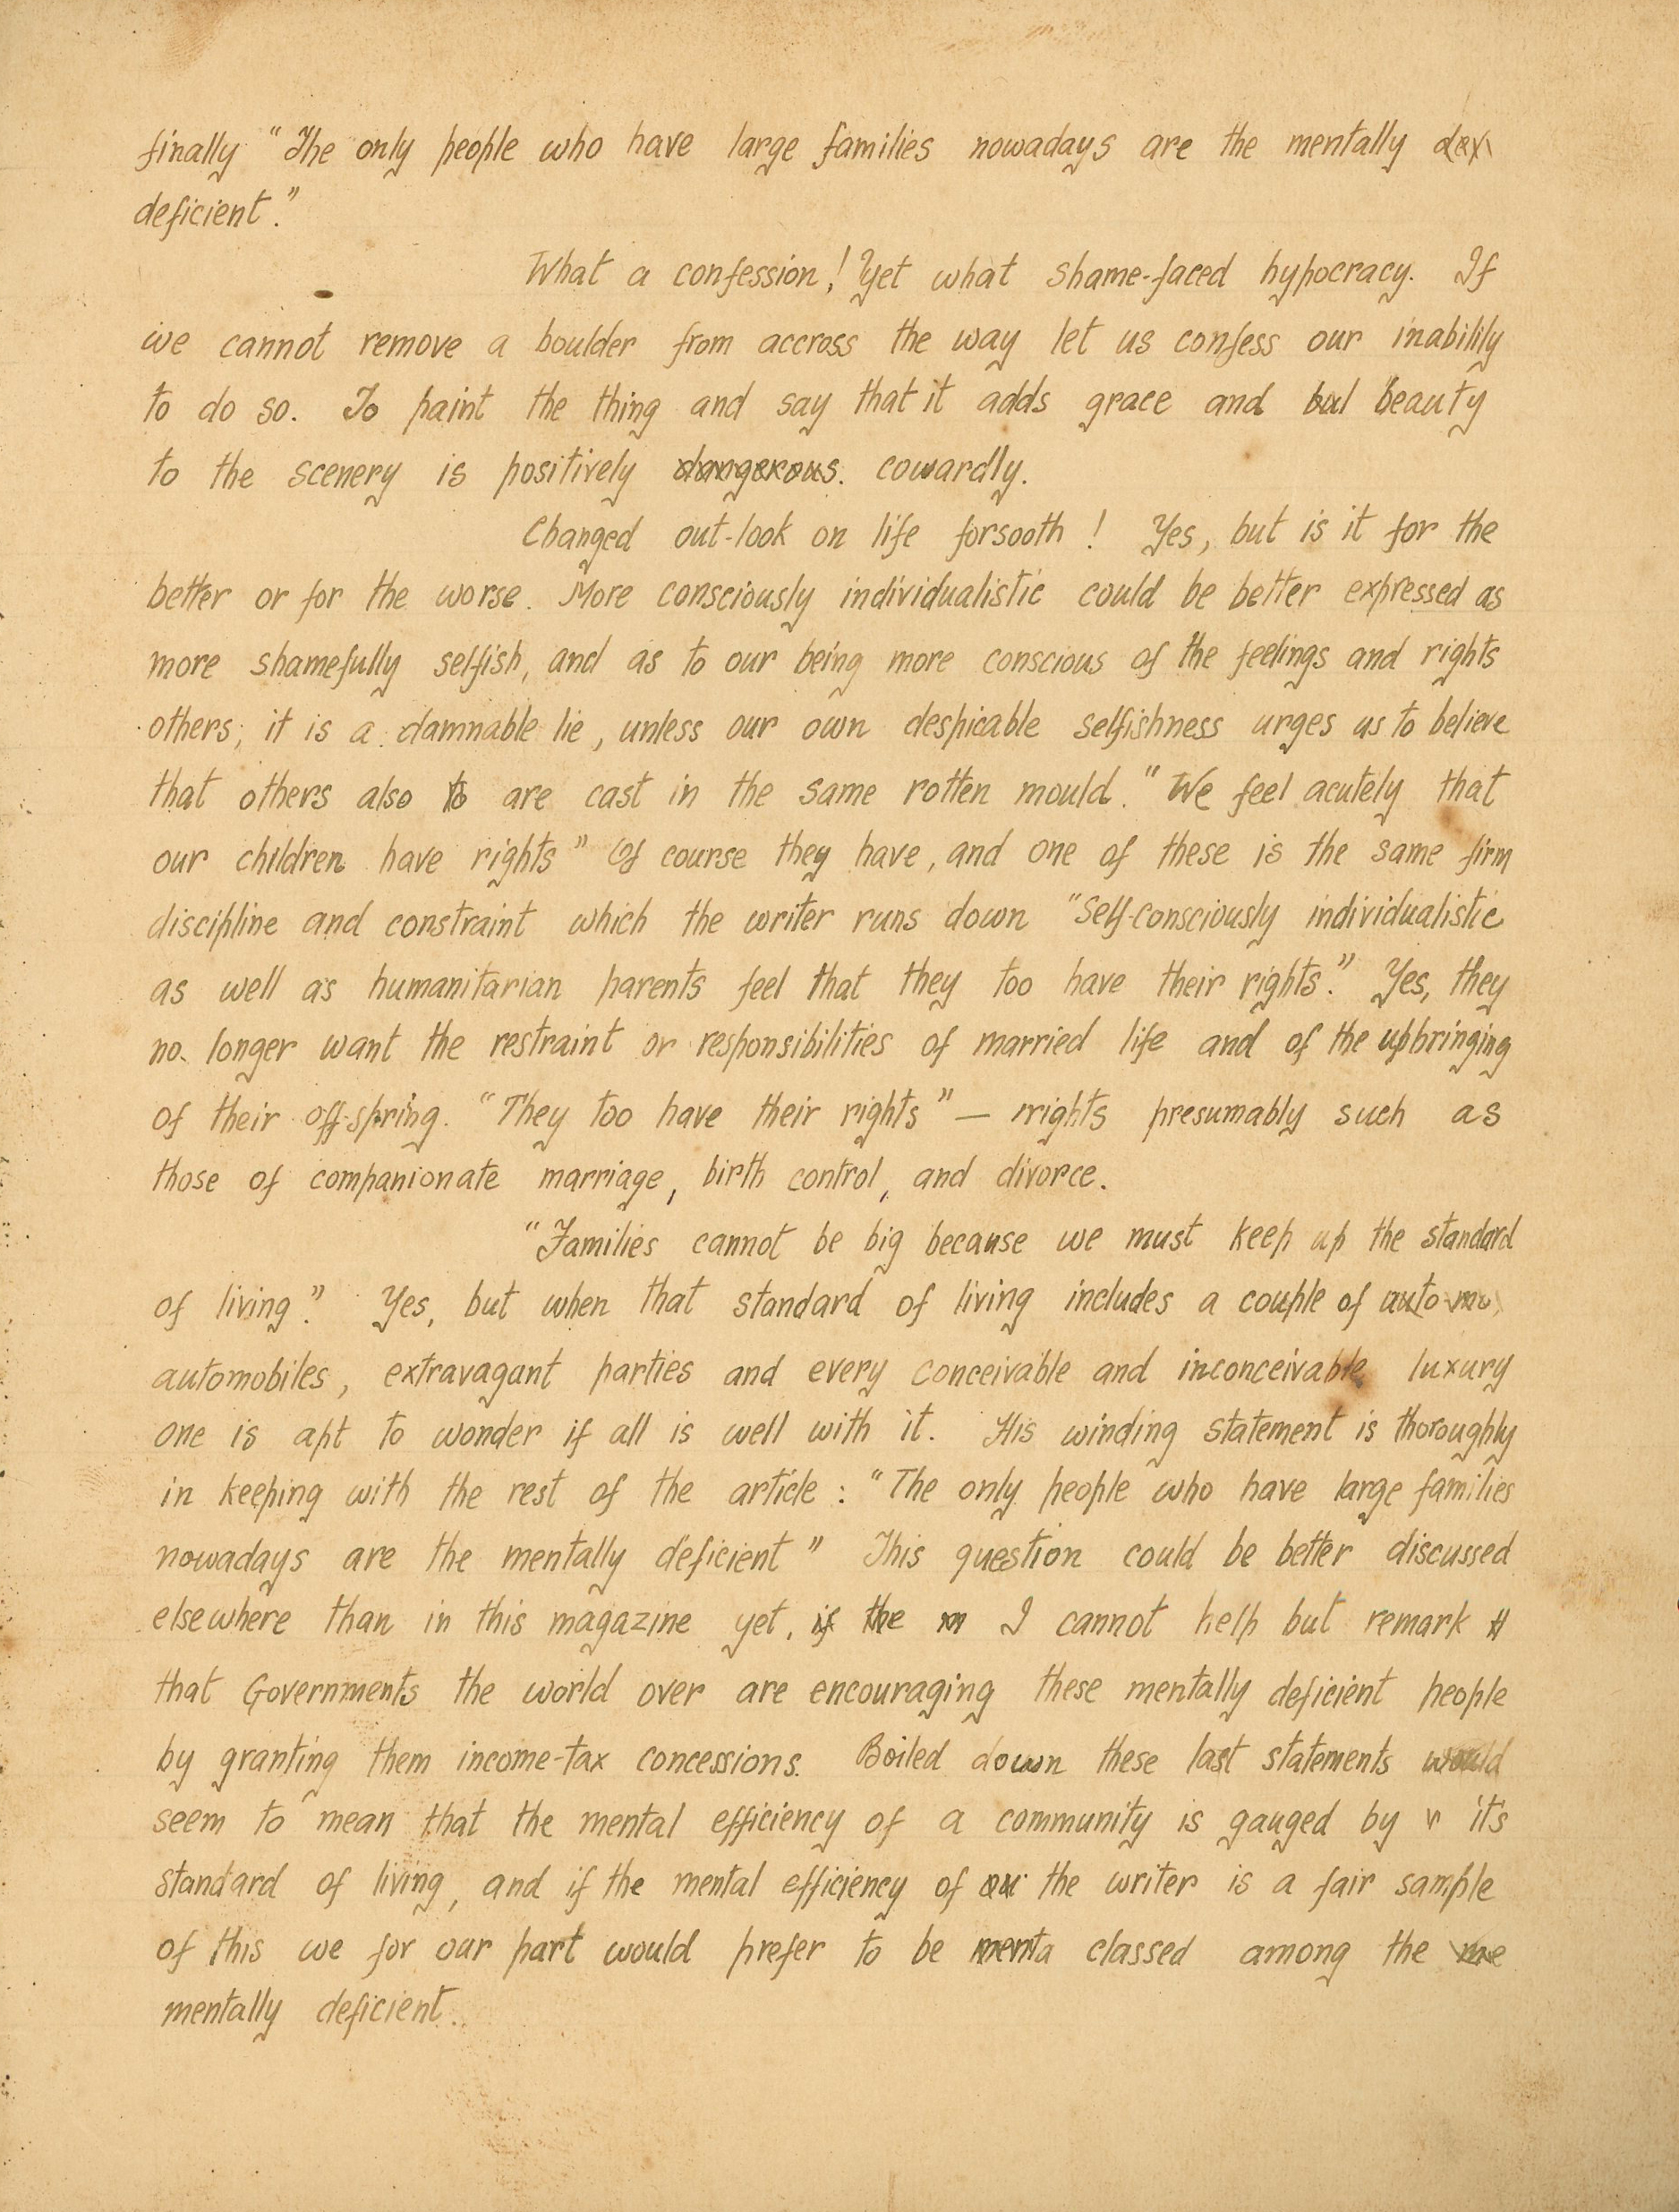 finally "The only people who have large families nowadays are the mentally
deficient."
What a confession! Yet what shame-faced hypocracy. If
we cannot remove a boulder from accross the way let us confess our inability
to do so. To paint the thing and say that it adds grace and beauty
to the scenery is positively dangerous. cowardly.
Changed out-look on life forsooth! Yes, but is it for the
better or for the worse. More consciously individualistic could be better expressed as
more shamefully selfish, and as to our being more conscious of the feelings and rights
others, it is a damnable lie, unless our own despicable selfishness urges us to believe
that others also to are cast in the same rotten mould. "We feel acutely that
our children have rights" Of course they have, and one of these is the same firm
discipline and constraint which the writer runs down "self-consciously individualistic
as well as humanitarian parents feel that they too have their rights." Yes, they
no longer want the restraint or responsibilities of married life and of the upbringing
of their off-spring. "They too have their rights" — rrights presumably such as
those of companionate marriage, birth control, and divorce.
"Families cannot be big because we must keep up the standard
of living." Yes, but when that standard of living includes a couple of auto-mo
automobiles, extravagant parties and every conceivable and inconceivable luxury
one is apt to wonder if all is well with it. His winding statement is thoroughly
in keeping with the rest of the article: "The only people who have large families
nowadays are the mentally deficient" This question could be better discussed
elsewhere than in this magazine yet, if the m I cannot help but remark
that Governments the world over are encouraging these mentally deficient people
by granting them income-tax concessions. Boiled down these last statements would
seem to mean that the mental efficiency of a community is gauged by it's
standard of living, and if the mental efficiency of ou the writer is a fair sample
of this we for our part would prefer to be menta classed among the me
mentally deficient.